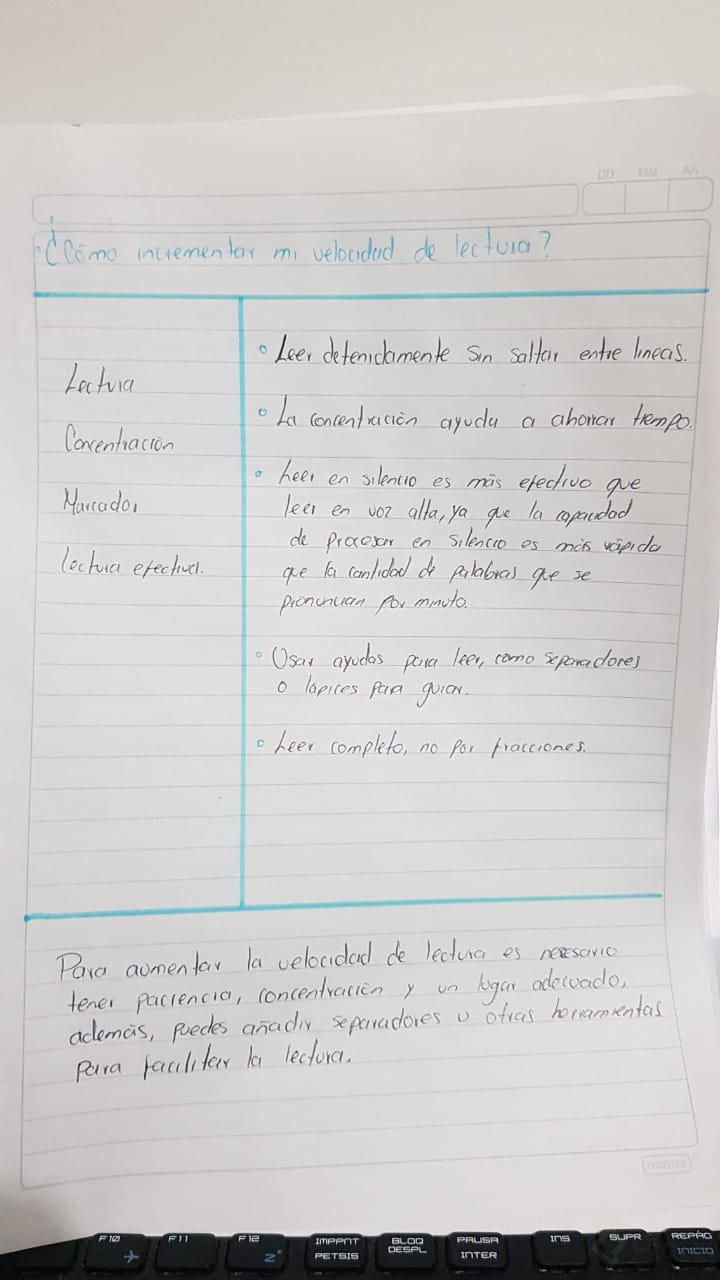 DD MM AA
¿Cómo incrementar mi velocidad de lectura?
Lectura
Concentración
Marcador
lectura efectiva.
° Leer detenidamente sin saltar entre lineas.
° La concentración ayuda a ahorrar tiempo.
° Leer en silencio es más efectivo que
leer en voz alta, ya que la capacidad
de procesar en silencio es más rápida
que la cantidad de palabras que se
pronuncian por minuto.
° Usar ayudas para leer, como separadores
o lápices para guiar.
° Leer completo, no por fracciones.
Para aumentar la velocidad de lectura es necesario
tener paciencia, concentración y un lugar adecuado,
además, puedes añadir separadores u otras herramientas
para facilitar la lectura.
norma
F10 F11 F12 IMPPNT BLOQ PAUSA INS SUPR REPÁG
PETSIS DESPL INTER INICIO